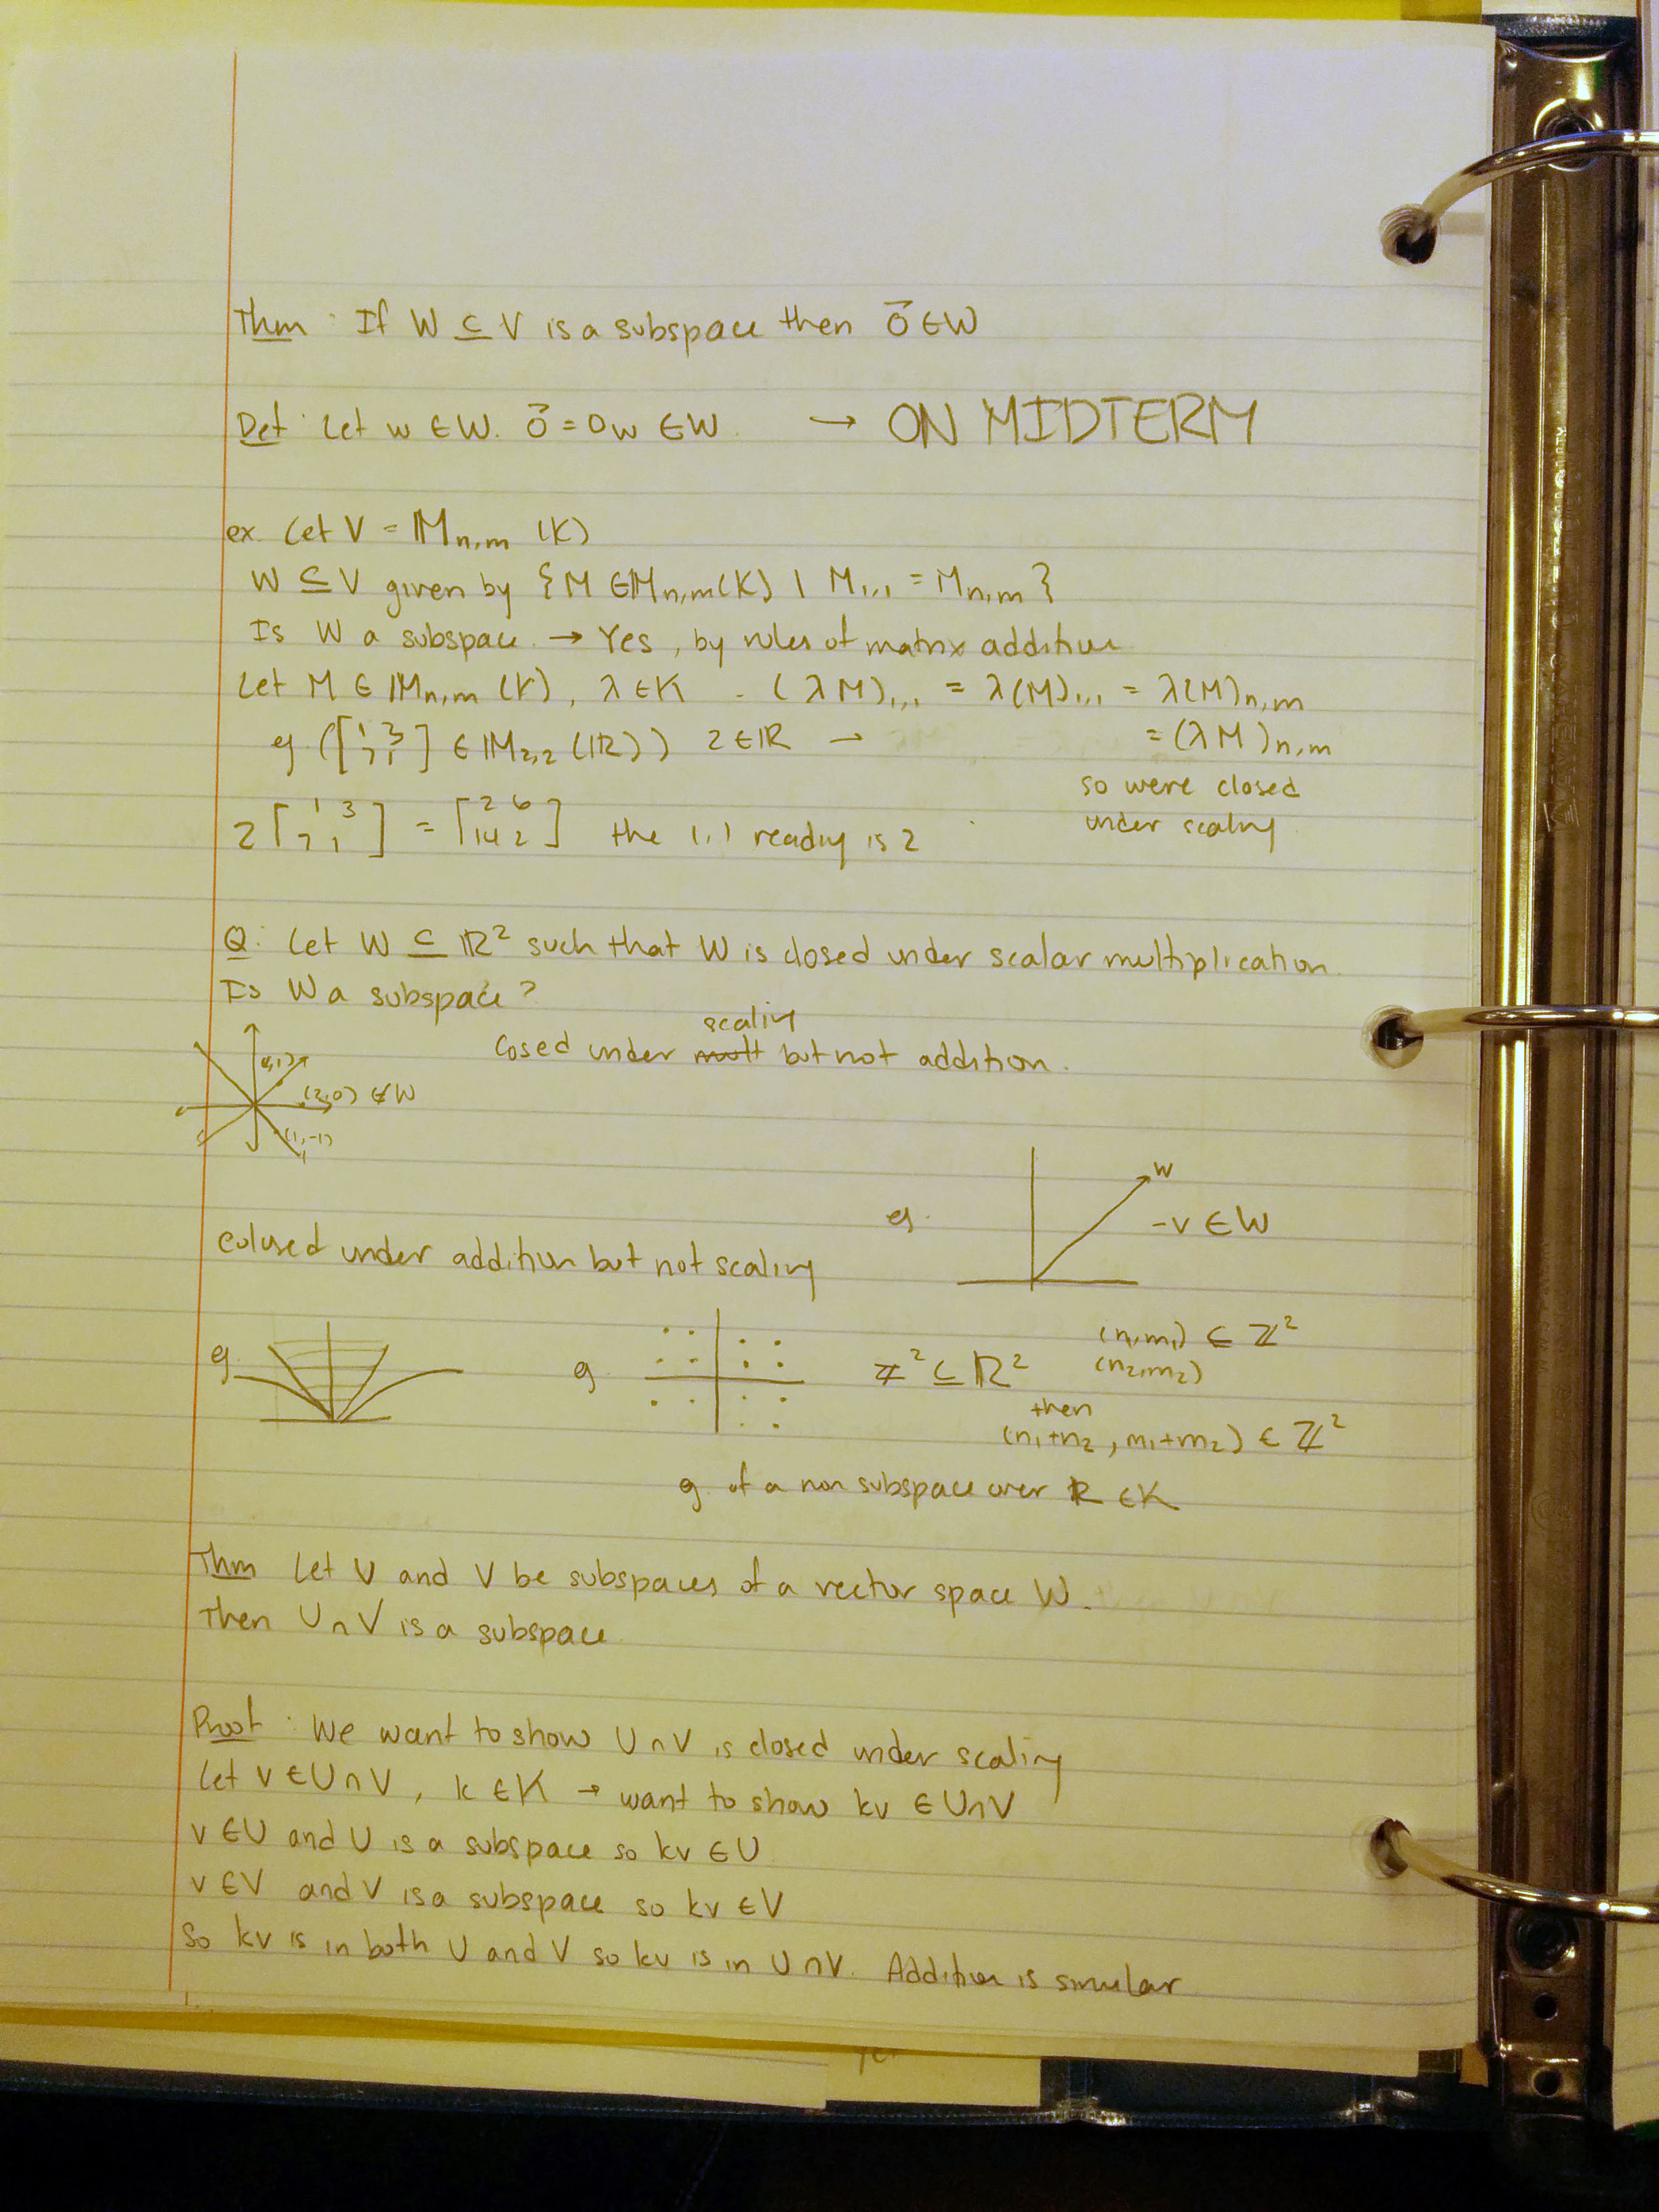 Thm : If W ⊆ V is a subspace then 0⃗ ∈ W
Def : Let w ∈ W. 0⃗ = 0w ∈ W. → ON MIDTERM
ex. Let V = Mn,m (K)
W ⊆ V given by {M ∈ Mn,m(K) | M1,1 = Mn,m}
Is W a subspace. → Yes, by rules of matrix addition
Let M ∈ Mn,m (K), λ ∈ K - (λM)1,1 = λ(M)1,1 = λ(M)n,m
= (λM)n,m
eg ([1 3 7 1] ∈ M2,2 (R)) 2 ∈ R →
so were closed
under scaling
2[1 3 7 1] = [2 6 14 2] the 1,1 is 2
Q: Let W ⊆ R² such that W is closed under scalar multiplication.
Is W a subspace?
scaling
Cosed under mult but not addition.
(1,1)
(2,0) ∉ W
(1,-1)
eg. W
-v ∈ W
colused under addition but not scaling
eg
eg Z² ⊆ R² (n1,m1) ∈ Z²
(n2,m2)
then
(n1+n2, m1+m2) ∈ Z²
eg of a non subspace over R ∈ K
Thm Let U and V be subspaces of a vector space W.
Then U∩V is a subspace
Proof : We want to show U∩V is closed under scaling
Let v ∈ U∩V, k ∈ K → want to show kv ∈ U∩V
v ∈ U and U is a subspace so kv ∈ U
v ∈ V and V is a subspace so kv ∈ V
So kv is in both U and V so kv is in U∩V. Addition is similar